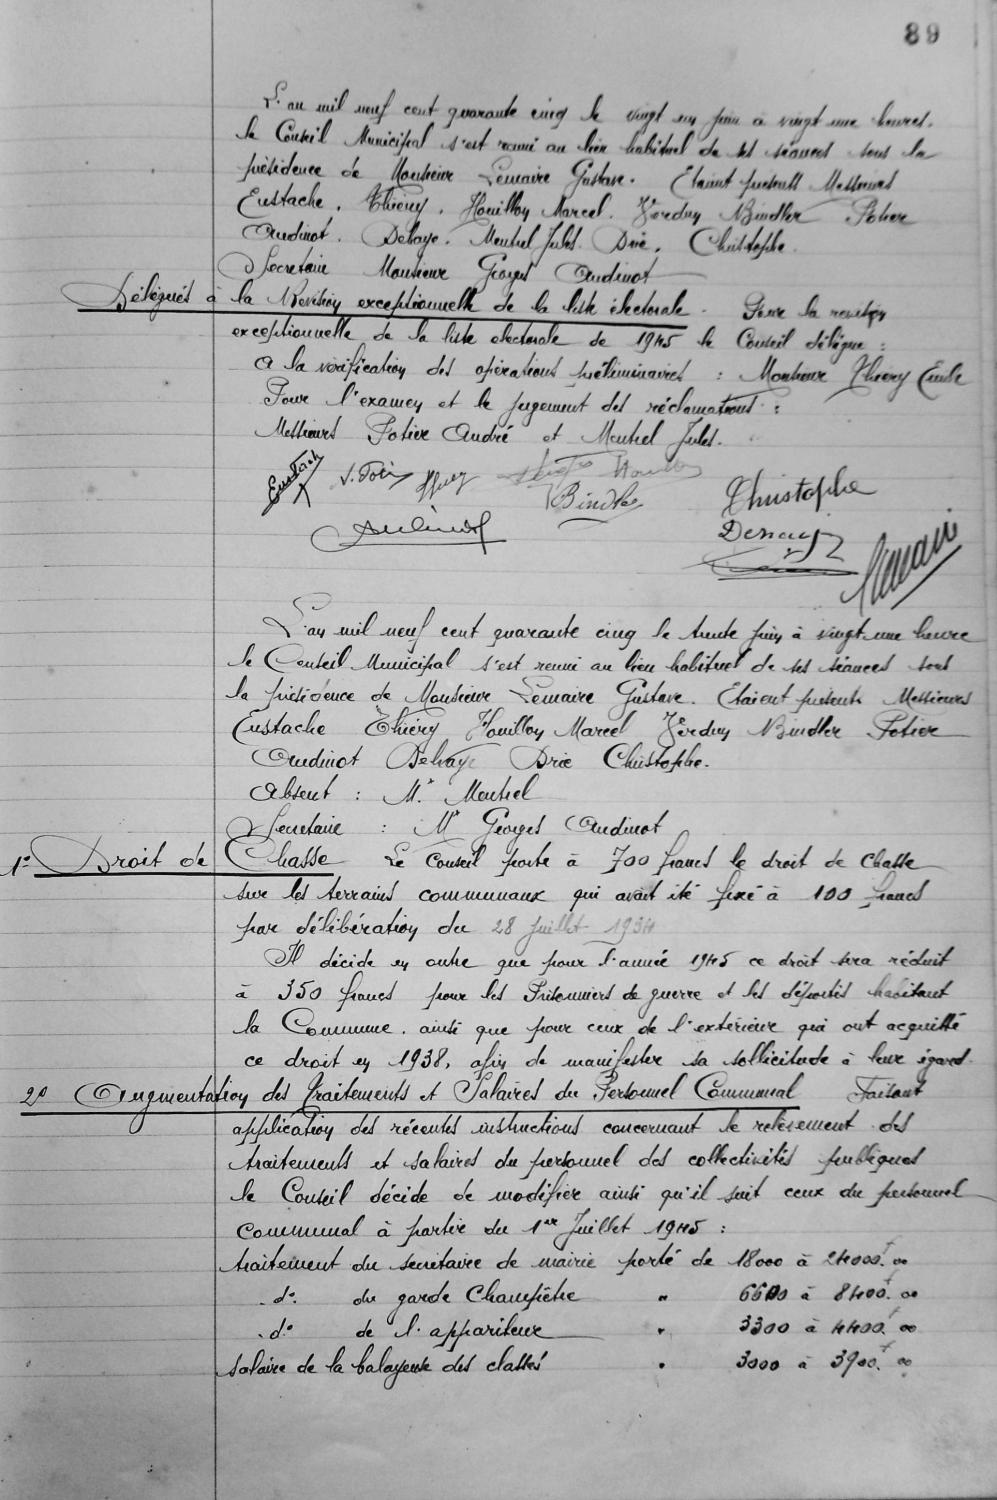 89
L'an mil neuf cent quarante cinq le vingt un juin à vingt une heures.
le Conseil Municipal s'est reuni au lieu habituel de ses séances sous la
présidence de Monsieur Lemaire Gustave. Etaient présents Messieurs
Eustache. Thiéry. Houillon Marcel. Verdun Bindler Potier
Audinot. Dehaye. Mentrel Jules. Drié. Christophe.
Secretaire Monsieur Georges Audinot
Délégués à la Revision exceptionnelle de la liste électorale. Pour la revision
exceptionnelle de la liste electorale de 1945 le Conseil délègue :
A la vérification des opérations préliminaires : Monsieur Thiery Emile
Pour l'examen et le jugement des réclamations :
Messieurs Potier André et Mentrel Jules.
Eustach Houillon
Bindler Christophe
Audinot
Lemaire
L'an mil neuf cent quarante cinq le trente juin à vingt-une heure
le Conseil Municipal s'est reuni au lieu habituel de ses séances sous
la présidence de Monsieur Lemaire Gustave. Etaient présents Messieurs
Eustache Thiéry Houillon Marcel Verdun Bindler Potier
Audinot Dehaye Drié Christophe.
Absent : Mr Mentrel
Secretaire : Mr Georges Audinot
1° Droit de Chasse Le Conseil porte à 700 francs le droit de chasse
sur les terrains communaux qui avait été fixé à 100 francs
par délibération du 28 juillet 1934
Il décide en outre que pour l'année 1945 ce droit sera réduit
à 350 francs pour les Prisonniers de guerre et les déportés habitant
la Commune. ainsi que pour ceux de l'extérieur qui ont acquitté
ce droit en 1938, afin de manifester sa sollicitude à leur égard.
2° Augmentation des Traitements et Salaires du Personnel Communal Faisant
application des récentes instructions concernant le relèvement des
traitements et salaires du personnel des collectivités publiques
le Conseil décide de modifier ainsi qu'il suit ceux du personnel
communal à partir du 1er Juillet 1945 :
traitement du secretaire de mairie porté de 18000 à 24000f. oo
.d°. du garde Champêtre " 6600 à 8400f. oo
.d° de l'appariteur " 3300 à 4400f. oo
salaire de la balayeuse des classes " 3000 à 3900f. oo